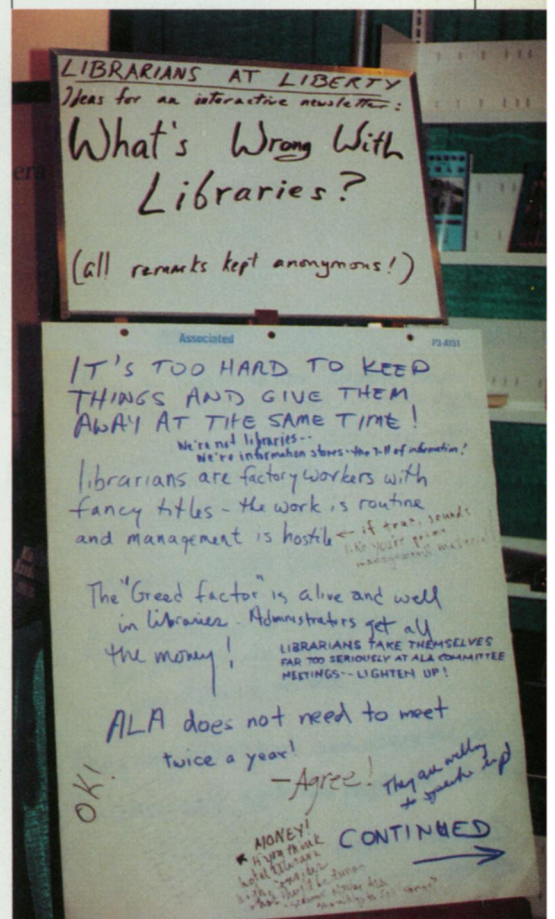 LIBRARIANS AT LIBERTY
Ideas for an interactive newsletter:
What's Wrong With
Libraries?
(all remarks kept anonymous!)
Associated
IT'S TOO HARD TO KEEP
THINGS AND GIVE THEM
AWAY AT THE SAME TIME!
We're not libraries--
We're information stores - the 7-11 of information!
librarians are factory workers with
fancy titles - the work is routine
and management is hostile ← if true, sounds
like you're
management material!
The "Greed factor" is alive and well
in libraries. Administrators get all
the money!
LIBRARIANS TAKE THEMSELVES
FAR TOO SERIOUSLY AT ALA COMMITTEE
MEETINGS -- LIGHTEN UP!
ALA does not need to meet
twice a year!
OK!
- Agree!
They are
to
MONEY!
if you think
hotel
CONTINUED